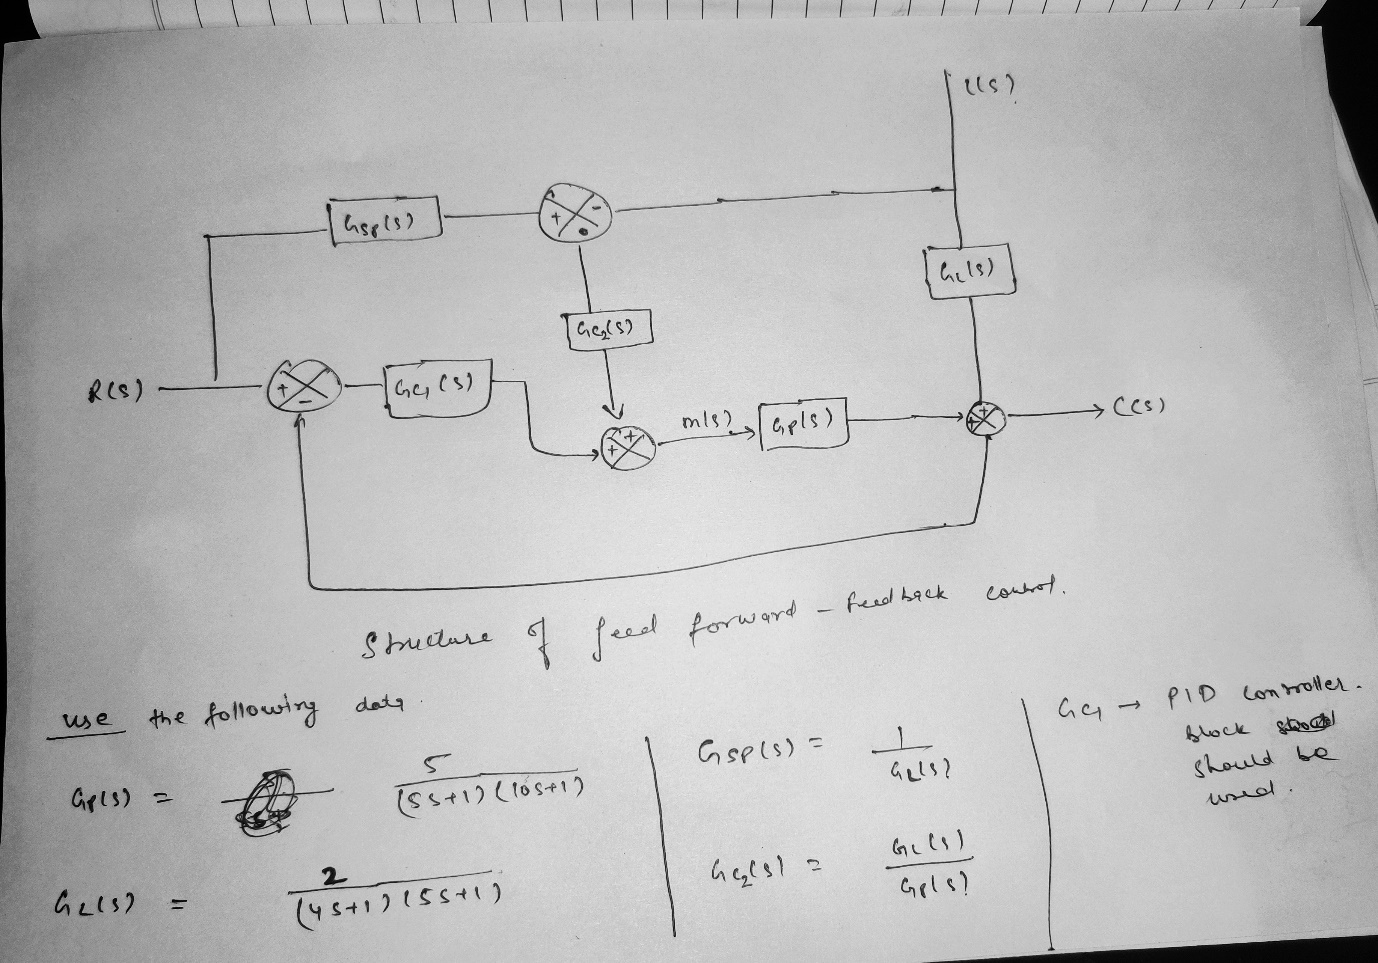 L(s)
Gsp(s)
+
-
GL(s)
Gc2(s)
R(s)
+
-
Gc1(s)
+
+
m(s)
Gp(s)
+
+
C(s)
Structure of feed forward - feed back control.
use the following data.
Gp(s) = 5 / (5s+1)(10s+1)
GL(s) = 2 / (4s+1)(5s+1)
Gsp(s) = 1 / GL(s)
Gc2(s) = GL(s) / Gp(s)
Gc1 → PID controller.
Block
should be
used.